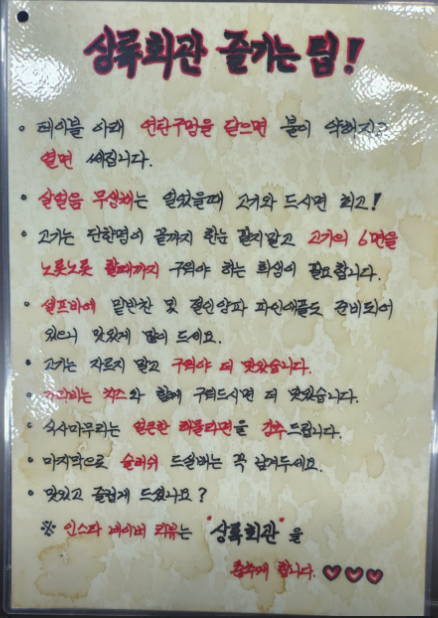 상류회관 즐기는 팁!
• 테이블 아래 연탄구멍을 닫으면 불이 약해지고
열면 쎄집니다.
• 살얼음 무생채는 얼었을때 고기와 드시면 최고!
• 고기는 단한명이 끝까지 한눈 팔지말고 고기의 6면을
노릇노릇 할때까지 구워야 하는 희생이 필요합니다.
• 셀프바에 밑반찬 및 절인양파 파인애플도 준비되어
있으니 맛있게 많이 드세요.
• 고기는 자르지 말고 구워야 더 맛있습니다.
• 치즈와 함께 구워드시면 더 맛있습니다.
• 식사마무리는 얼큰한 해물라면을 강추드립니다.
• 마지막으로 슬러쉬 드실배는 꼭 남겨두세요.
• 맛있고 즐겁게 드셨나요?
※ 인스타 네이버 리뷰는 "상류회관"을
춤추게 합니다. ♡♡♡